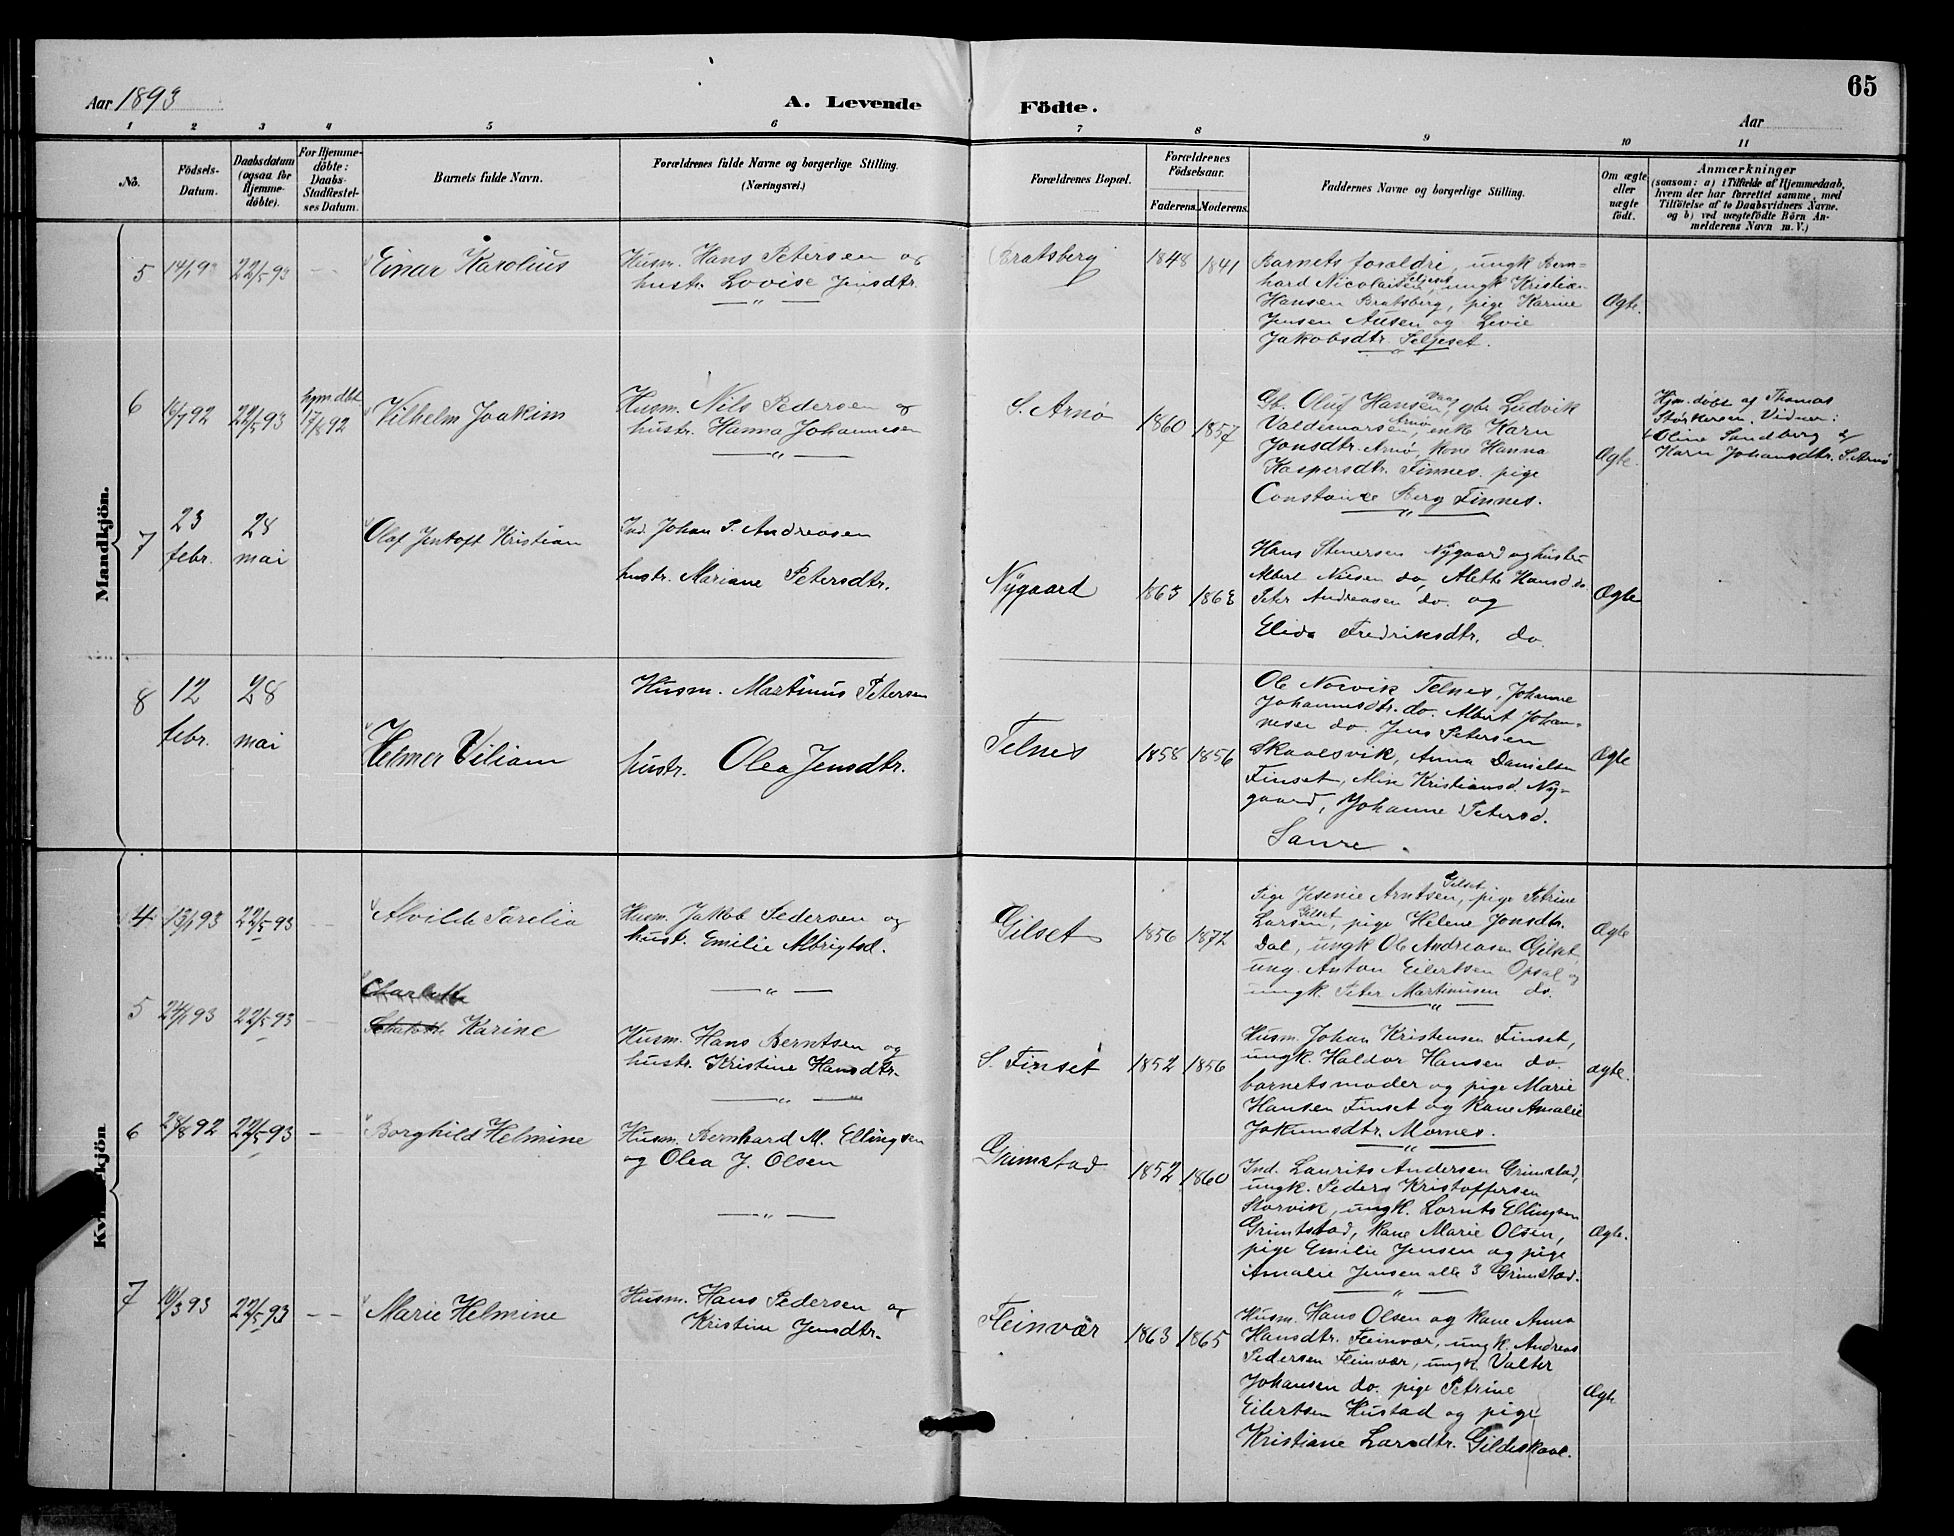 Aar 1893
A. Levende Födte.
65
Aar
1 2 3 4 5 6 7 8 9 10 11
No.
Födsels-Datum.
Daabsdatum (ogsaa for Hjemme-döbte).
For Hjemme-döbte: Daabs-Stadfæstel-ses Datum.
Barnets fulde Navn.
Forældrenes fulde Navne og borgerlige Stilling.
(Næringsvei.)
Forældrenes Bopæl.
Forældrenes Födselsaar.
Faderens. Moderens.
Faddernes Navne og borgerlige Stilling.
Om ægte eller uægte födt.
Anmærkninger
(saasom: a) i Tilfælde af Hjemmedaab,
hvem der har forrettet samme, med
Tilföielse af to Daabsvidners Navne.
og b) ved uægtefödte Börn An-
melderens Navn m.V.)
Mandkjön.
5 14/1 93 22/5 93 — Einar Karolius
Husm. Hans Petersen og
hustr. Lovise Jensdtr.
Bratsberg 1848 1841
Barnets forældre, ungk Bern-
hard Nicolaisen Seljeset, ungk Kristian
Hansen Bratsberg, pige Karine
Jensen Ausen og Levie
Jakobsdtr. Seljeset.
Ægte.
6 16/7 92 22/5 93 hjm.dbt 17/8 92 Vilhelm Joakim
Husm. Nils Pedersen og
hustr. Hanna Johannesen
S. Arnø 1860 1857
Gb. Oluf Hansen, gbr Ludvik
Valdemarsen Arnø, enke Karn
Jonsdtr. Arnø, Kone Hanna
Kaspersdtr. Finnes. pige
Constance Berg Finnes.
Ægte.
Hjm. døbt af Thomas
Størkersen. Vidner:
Oline Sandberg &
Karn Johansdtr. S. Arnø
7 23 febr. 28 mai Olaf Jentoft Kristian
Ind. Johan P. Andreasen
hustr. Mariane Petersdtr.
Nygaard 1863 1863
Hans Stenersen Nygaard og hustru
Albert Nilsen do, Alette Hansd. do.
Peter Andreasen do. og
Elida Fredriksdtr. do
Ægte
8 12 febr. 28 mai Helmer Viliam
Husm. Martinus Petersen
hustr. Olea Jensdtr.
Telnes 1858 1856
Ole Norvik Telnes, Johanne
Johannesdtr. do. Albert Johan-
nesen do. Jens Petersen
Skaalsvik, Anna Danielsen
Finset, Aline Kristiansd. Ny-
gaard, Johanne Petersd.
Saure.
Ægte
Kvindekjön
4 13/1 93 22/5 93 — Alvilde Parelia
Husm. Jakob Pedersen og
hustr. Emilie Albrigtsd.
Gilset 1856 1872
Pige Jesenie Arntsen Gilset, pige Petrine
Larsen Gilset, pige Helene Jonsdtr.
Dal, ungk Ole Andreasen Gilset,
ung. Anton Eilertsen Opsal og
ungk. Peter Martinusen do.
Ægte
5 24/1 93 22/5 93 — Charlotte
Karine
Husm. Hans Berntsen og
hustr. Kristine Hansdtr.
S. Finset 1852 1856
Husm. Johan Kristensen Finset,
ungk. Haldor Hansen do.
barnets moder og pige Marie
Hansen Finset og Kone Amalie
Jokumsdtr. Mornes.
ægte.
6 28/8 92 22/5 93 — Borghild Helmine
Husm. Bernhard M. Ellingsen
og Olea J. Olsen
Grimstad 1852 1860
Ind. Laurits Andersen Grimstad,
ungk. Peders Kristoffersen
Storvik, ungk. Lornts Ellingsen
Grimtstad, Kone Marie Olsen,
pige Emilie Jensen og pige
Amalie Jensen alle 3 Grimstad.
Ægte.
7 10/3 93 22/5 93 — Marie Helmine
Husm. Hans Pedersen og
Kristine Jensdtr.
Fleinvær 1863 1865
Husm. Hans Olsen og Kone Anna
Hansdtr. Fleinvær, ungk. Andreas
Pedersen Fleinvær, ungk. Valter
Johansen do. pige Petrine
Eilertsen Hustad og pige
Kristiane Larsdtr. Gildeskaal.
Ægte